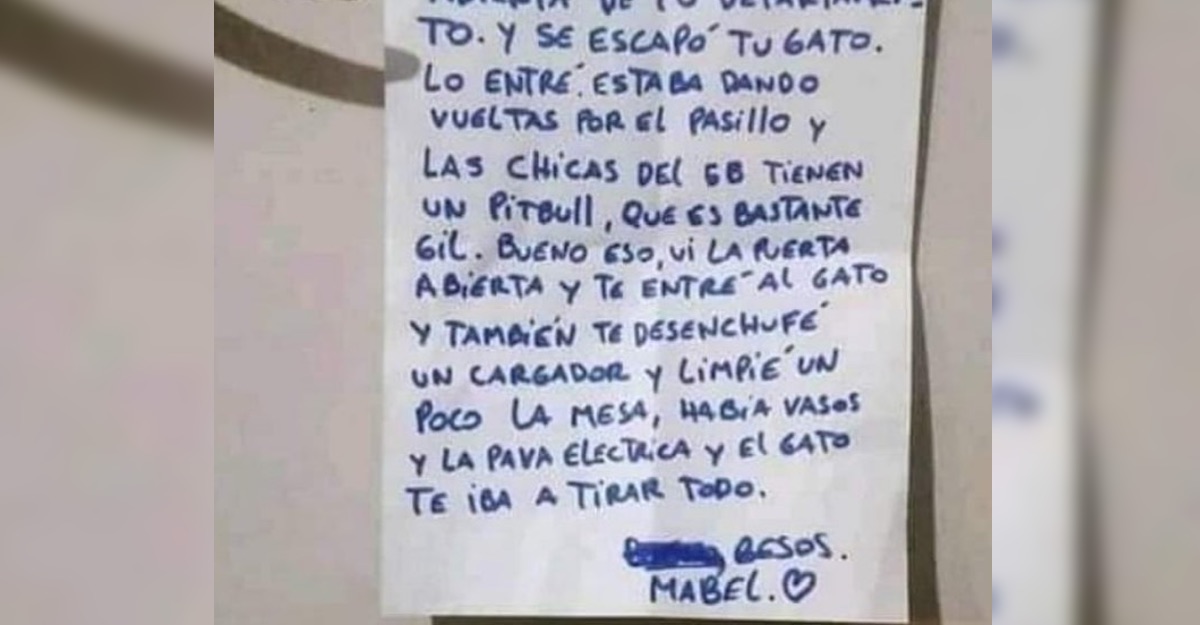 DE TU DEPARTAMEN-
TO. Y SE ESCAPÓ TU GATO.
LO ENTRÉ. ESTABA DANDO
VUELTAS POR EL PASILLO Y
LAS CHICAS DEL 5B TIENEN
UN PITBULL, QUE ES BASTANTE
GIL. BUENO ESO, VI LA PUERTA
ABIERTA Y TE ENTRÉ AL GATO
Y TAMBIÉN TE DESENCHUFÉ
UN CARGADOR Y LIMPIÉ UN
POCO LA MESA, HABÍA VASOS
Y LA PAVA ELECTRICA Y EL GATO
TE IBA A TIRAR TODO.
BESOS.
MABEL.